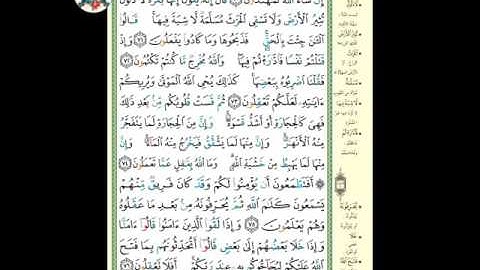 إِن شَاءَ اللَّهُ لَمُهْتَدُونَ ﴿٧٠﴾ قَالَ إِنَّهُ يَقُولُ إِنَّهَا بَقَرَةٌ لَا ذَلُولٌ
تُثِيرُ الْأَرْضَ وَلَا تَسْقِي الْحَرْثَ مُسَلَّمَةٌ لَا شِيَةَ فِيهَا قَالُوا
الْآنَ جِئْتَ بِالْحَقِّ فَذَبَحُوهَا وَمَا كَادُوا يَفْعَلُونَ ﴿٧١﴾ وَإِذْ
قَتَلْتُمْ نَفْسًا فَادَّارَأْتُمْ فِيهَا وَاللَّهُ مُخْرِجٌ مَا كُنْتُمْ تَكْتُمُونَ ﴿٧٢﴾
فَقُلْنَا اضْرِبُوهُ بِبَعْضِهَا كَذَلِكَ يُحْيِي اللَّهُ الْمَوْتَى وَيُرِيكُمْ
آيَاتِهِ لَعَلَّكُمْ تَعْقِلُونَ ﴿٧٣﴾ ثُمَّ قَسَتْ قُلُوبُكُمْ مِنْ بَعْدِ ذَلِكَ
فَهِيَ كَالْحِجَارَةِ أَوْ أَشَدُّ قَسْوَةً وَإِنَّ مِنَ الْحِجَارَةِ لَمَا يَتَفَجَّرُ
مِنْهُ الْأَنْهَارُ وَإِنَّ مِنْهَا لَمَا يَشَّقَّقُ فَيَخْرُجُ مِنْهُ الْمَاءُ وَإِنَّ
مِنْهَا لَمَا يَهْبِطُ مِنْ خَشْيَةِ اللَّهِ وَمَا اللَّهُ بِغَافِلٍ عَمَّا تَعْمَلُونَ ﴿٧٤﴾
أَفَتَطْمَعُونَ أَنْ يُؤْمِنُوا لَكُمْ وَقَدْ كَانَ فَرِيقٌ مِنْهُمْ
يَسْمَعُونَ كَلَامَ اللَّهِ ثُمَّ يُحَرِّفُونَهُ مِنْ بَعْدِ مَا عَقَلُوهُ
وَهُمْ يَعْلَمُونَ ﴿٧٥﴾ وَإِذَا لَقُوا الَّذِينَ آمَنُوا قَالُوا آمَنَّا
وَإِذَا خَلَا بَعْضُهُمْ إِلَى بَعْضٍ قَالُوا أَتُحَدِّثُونَهُمْ بِمَا فَتَحَ
اللَّهُ عَلَيْكُمْ لِيُحَاجُّوكُمْ بِهِ عِنْدَ رَبِّكُمْ أَفَلَا تَعْقِلُونَ ﴿٧٦﴾